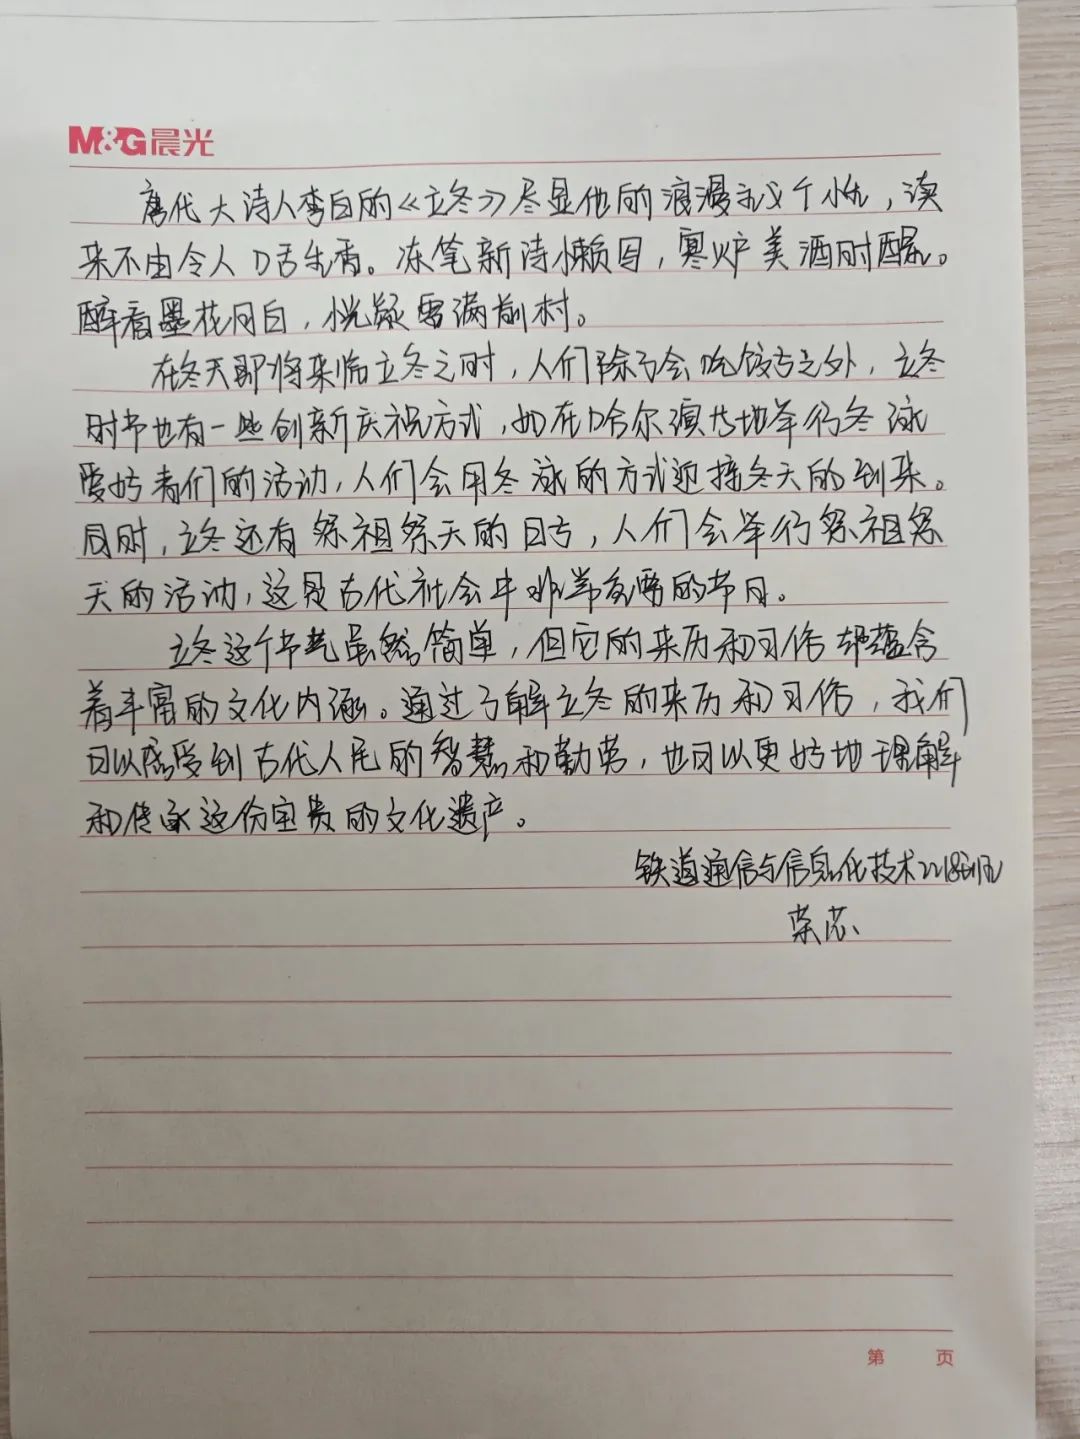 M&G晨光
唐代大诗人李白的《立冬》尽显他的浪漫主义个性，读
来不由令人口舌生香。冻笔新诗懒写，寒炉美酒时醒。
醉看墨花月白，恍疑雪满前村。
在冬天即将来临立冬之时，人们除了会吃饺子之外，立冬
时节也有一些创新庆祝方式，如在哈尔滨等地举行冬泳
爱好者们的活动，人们会用冬泳的方式迎接冬天的到来。
同时，立冬还有祭祖祭天的日子，人们会举行祭祖祭
天的活动，这是古代社会中非常重要的节日。
立冬这个节气虽然简单，但它的来历和习俗却蕴含
着丰富的文化内涵。通过了解立冬的来历和习俗，我们
可以感受到古代人民的智慧和勤劳，也可以更好地理解
和传承这份宝贵的文化遗产。
铁道通信与信息化技术2218班
荣芯
第 页